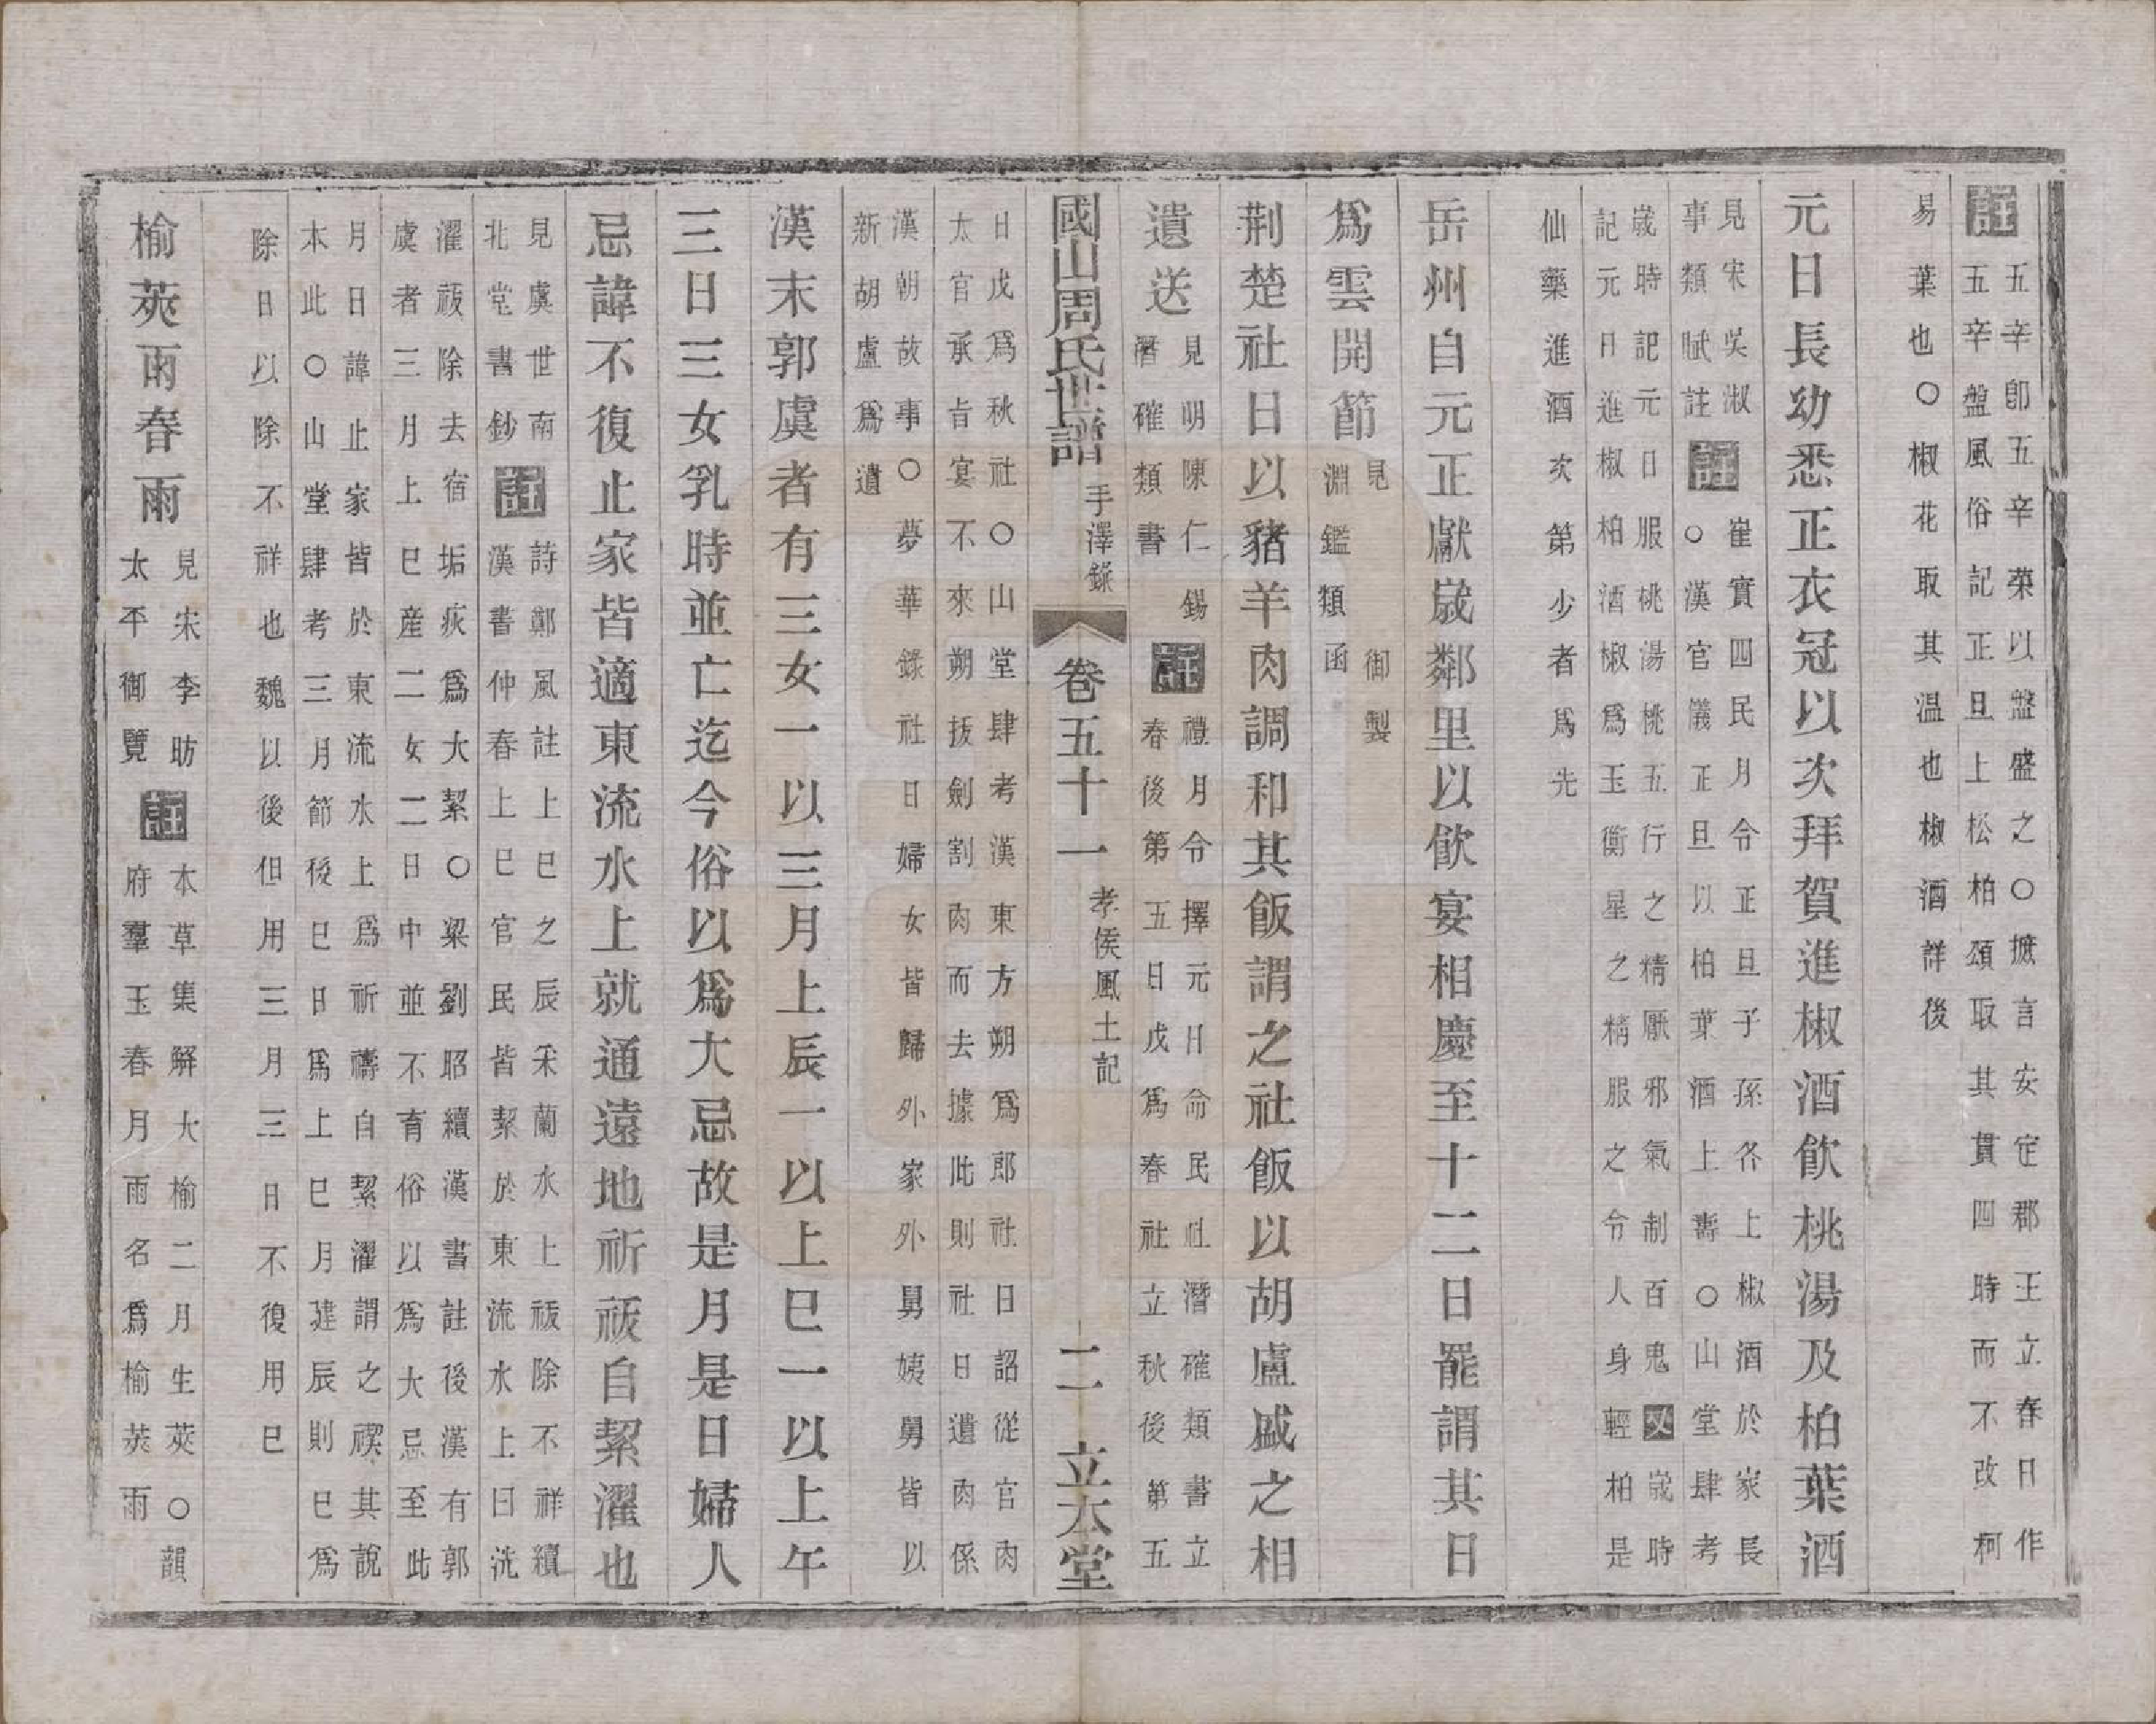 註
五辛卽五辛菜以盤盛之○摭言安定郡王立春日作
五辛盤風俗記正旦上松柏頌取其貫四時而不改柯
易葉也○椒花取其温也椒酒詳後
元日長幼悉正衣冠以次拜賀進椒酒飲桃湯及柏葉酒
見宋吳淑
事類賦註
註
崔實四民月令正旦子孫各上椒酒於家長
○漢官儀正旦以柏葉酒上壽○山堂肆考
歲時記元日服桃湯桃五行之精厭邪氣制百鬼又歲時
記元日進椒柏酒椒爲玉衡星之精服之令人身輕柏是
仙藥進酒次第少者爲先
岳州自元正獻歲鄰里以飮宴相慶至十二日罷謂其日
爲雲開節
見御製
淵鑑類函
荆楚社日以豬羊肉調和其飯謂之社飯以胡盧盛之相
遺送
見明陳仁錫
潛確類書
註
禮月令擇元日命民社潛確類書立
春後第五日戊爲春社立秋後第五
國山周氏世譜 手澤錄 卷五十一 孝侯風土記 二 立本堂
日戊爲秋社○山堂肆考漢東方朔爲郎社日詔從官肉
太官承旨宴不來朔拔劍割肉而去據此則社日遺肉係
漢朝故事○夢華錄社日婦女皆歸外家外舅姨舅皆以
新胡盧爲遺
漢末郭虞者有三女一以三月上辰一以上巳一以上午
三日三女乳時並亡迄今俗以爲大忌故是月是日婦人
忌諱不復止家皆適東流水上就通遠地祈祓自絜濯也
見虞世南
北堂書鈔
註
詩鄭風註上巳之辰采蘭水上祓除不祥續
漢書仲春上巳官民皆絜於東流水上曰洗
濯祓除去宿垢疢爲大絜○梁劉昭續漢書註後漢有郭
虞者三月上巳産二女二日中並不育俗以爲大忌至此
月日諱止家皆於東流水上爲祈禱自絜濯謂之禊其說
本此○山堂肆考三月節後巳日爲上巳月建辰則巳爲
除日以除不祥也魏以後但用三月三日不復用巳
榆莢雨春雨
見宋李昉
太平御覽
註
本草集解大榆二月生莢○韻
府羣玉春月雨名爲榆莢雨